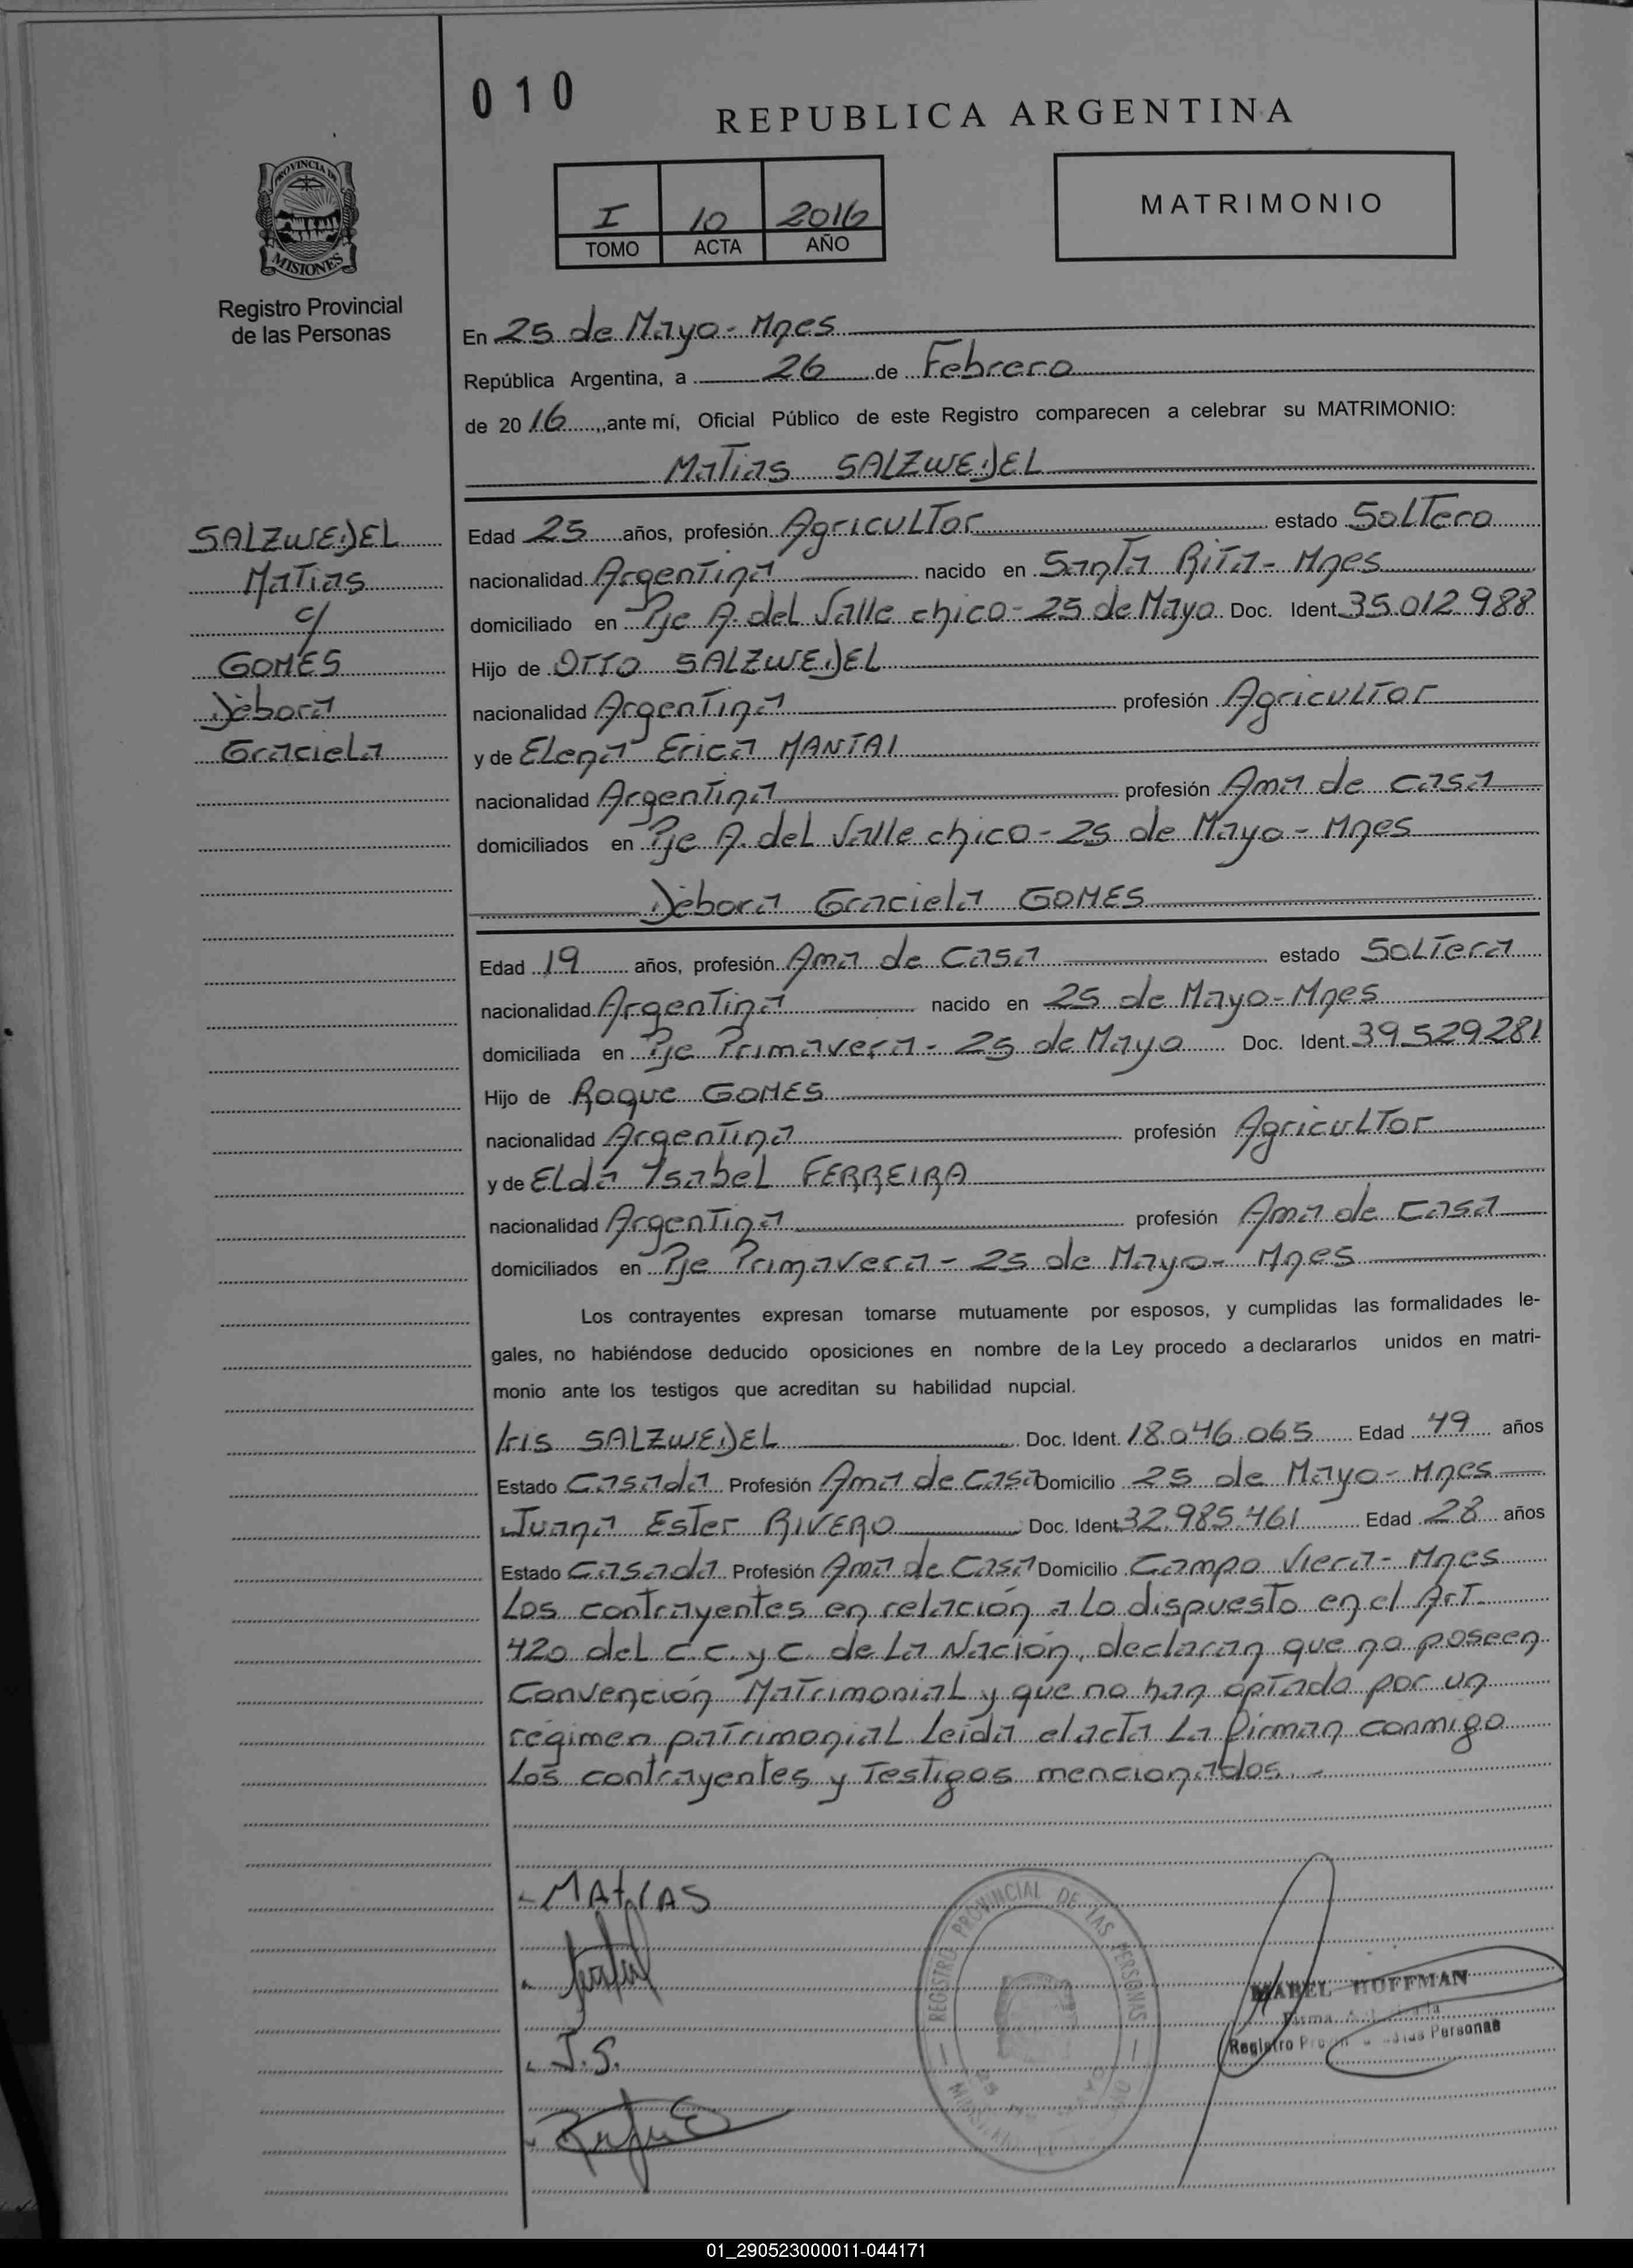 010
REPUBLICA ARGENTINA
PROVINCIA DE
MISIONES
Registro Provincial
de las Personas
I 10 2016
TOMO ACTA AÑO
MATRIMONIO
En 25 de Mayo - Mnes
República Argentina, a 26 de Febrero
de 2016, ante mí, Oficial Público de este Registro comparecen a celebrar su MATRIMONIO:
Matias SALZWEDEL
SALZWEDEL
Matias
c/
GOMES
Dèbora
Graciela
Edad 25 años, profesión Agricultor estado Soltero
nacionalidad Argentina nacido en Santa Rita - Mnes
domiciliado en Pje A. del Valle chico - 25 de Mayo Doc. Ident. 35.012.988
Hijo de OTTO SALZWEDEL
nacionalidad Argentina profesión Agricultor
y de Elena Erica MANTAI
nacionalidad Argentina profesión Ama de casa
domiciliados en Pje A. del Valle chico - 25 de Mayo - Mnes
Dèbora Graciela GOMES
Edad 19 años, profesión Ama de Casa estado Soltera
nacionalidad Argentina nacido en 25 de Mayo - Mnes
domiciliada en Pje Primavera - 25 de Mayo Doc. Ident. 39.529.281
Hijo de Roque GOMES
nacionalidad Argentina profesión Agricultor
y de Elda Ysabel FERREIRA
nacionalidad Argentina profesión Ama de Casa
domiciliados en Pje Primavera - 25 de Mayo - Mnes
Los contrayentes expresan tomarse mutuamente por esposos, y cumplidas las formalidades le-
gales, no habiéndose deducido oposiciones en nombre de la Ley procedo a declararlos unidos en matri-
monio ante los testigos que acreditan su habilidad nupcial.
Iris SALZWEDEL Doc. Ident. 18.046.065 Edad 49 años
Estado Casada Profesión Ama de Casa Domicilio 25 de Mayo - Mnes
Juana Ester RIVERO Doc. Ident. 32.985.461 Edad 28 años
Estado Casada Profesión Ama de Casa Domicilio Campo Viera - Mnes
Los contrayentes en relación a lo dispuesto en el Art.
420 del C.C. y C. de La Nación, declaran que no poseen
Convención Matrimonial y que no han optado por un
régimen patrimonial Leida el acta La firman conmigo
Los contrayentes y Testigos mencionados. -
- MAtiAS
J.S.
REGISTRO PROVINCIAL DE LAS PERSONAS
MABEL HOFFMAN
Firma
Registro de las Personas
01_290523000011-044171